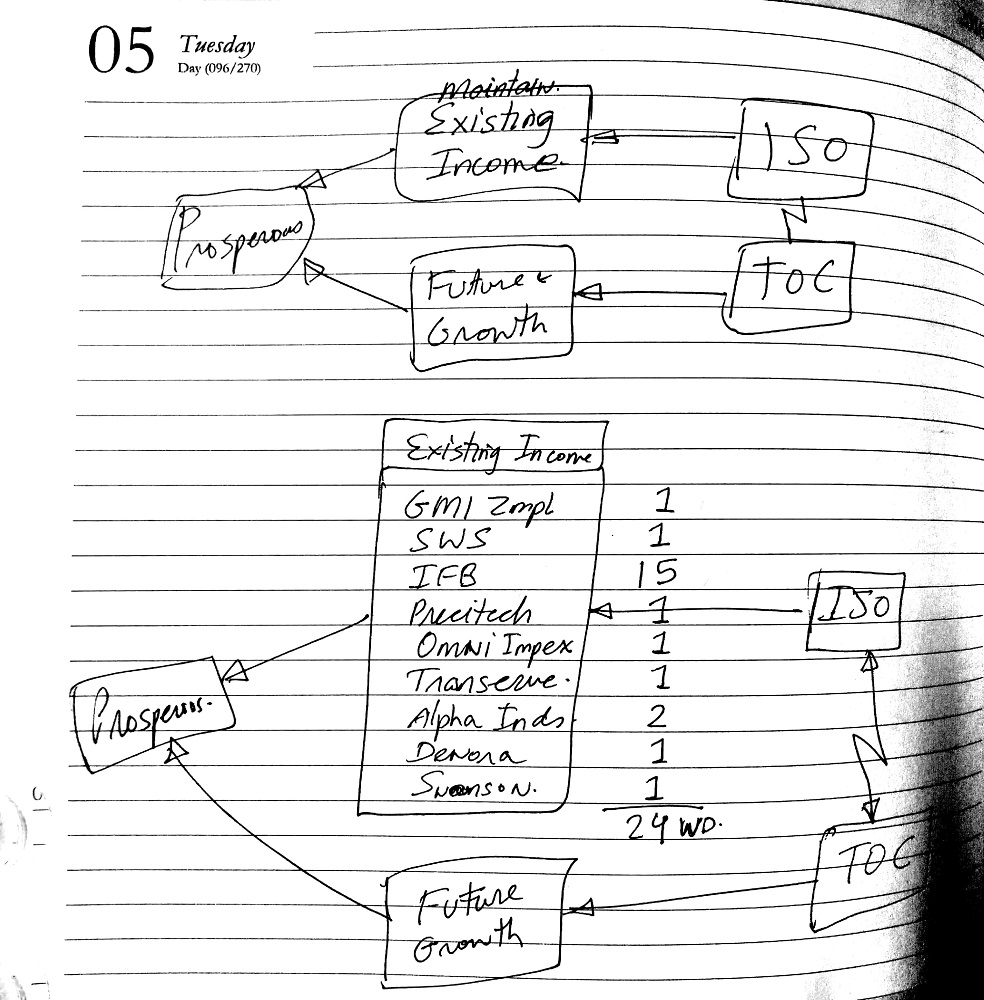 05 Tuesday
Day (096/270)
Maintain.
Existing
Income.
ISO
Prosperous
Future &
Growth
TOC
Existing Income
GMI Zmpl 1
SWS 1
IFB 15
Precitech 1
Omni Impex 1
Transerve. 1
Alpha Inds. 2
Denora 1
Swanson. 1
24 WD.
ISO
Prosperous.
TOC
Future
Growth